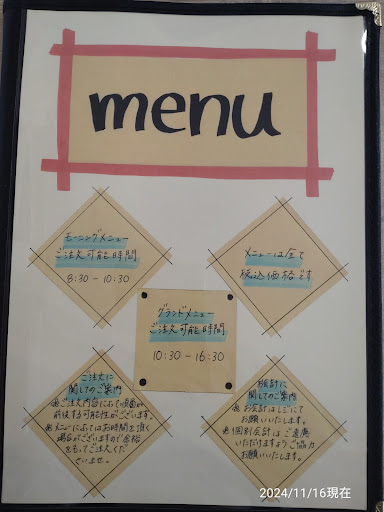 menu
モーニングメニュー
ご注文可能時間
8:30-10:30
メニューは全て
税込価格です
グランドメニュー
ご注文可能時間
10:30-16:30
ご注文に
関してのご案内
※ご注文内容によって順番が
前後する可能性がございます。
※メニューによってはお時間を頂く
場合がございますので余裕
をもってご注文くだ
さいませ。
関してのご案内
※お会計はレジにて
お願いいたします。
※個別会計はご遠慮
いただけますようご協力
お願いいたします。
2024/11/16現在